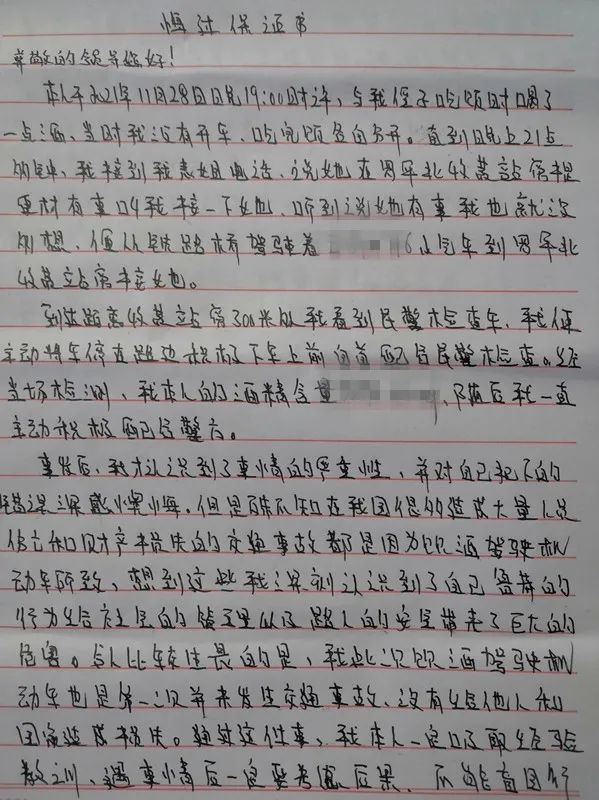 悔过保证书
尊敬的领导您好！
本人于2021年11月28日晚19:00时许，与我侄子吃饭时喝了
一点酒，当时我没有开车，吃完饭各自分开。直到晚上21点
的钟，我接到我表姐电话，说她在周年北收费站停
有事叫我接一下她，听到说她有事我也就没
的想，便从铁路桥驾驶着 6小汽车到周年北
收费站旁接她。
到达距离收费站旁300米处我看到民警检查车，我便
主动将车停在路边积极下车上前自首配合民警检查。经
当场检测，我本人的酒精含量 ，随后我一直
主动积极配合警方。
事发后，我才认识到了事情的严重性，并对自己犯下的
错误深感懊悔。但是殊不知在我国很的造成大量人员
伤亡和财产损失的交通事故都是因为饮酒驾驶机
动车所致，想到这些我深刻认识到了自己鲁莽的
行为给社会的 以及路人的安全带来了巨大的
危害。令人比较庆 的是，我此次饮酒驾驶机
动车也是第一次并未发生交通事故，没有给他人和
国家造成损失。通过这件事，我本人一定吸取经验
教训，遇事情后一定要考虑后果，不能盲目行